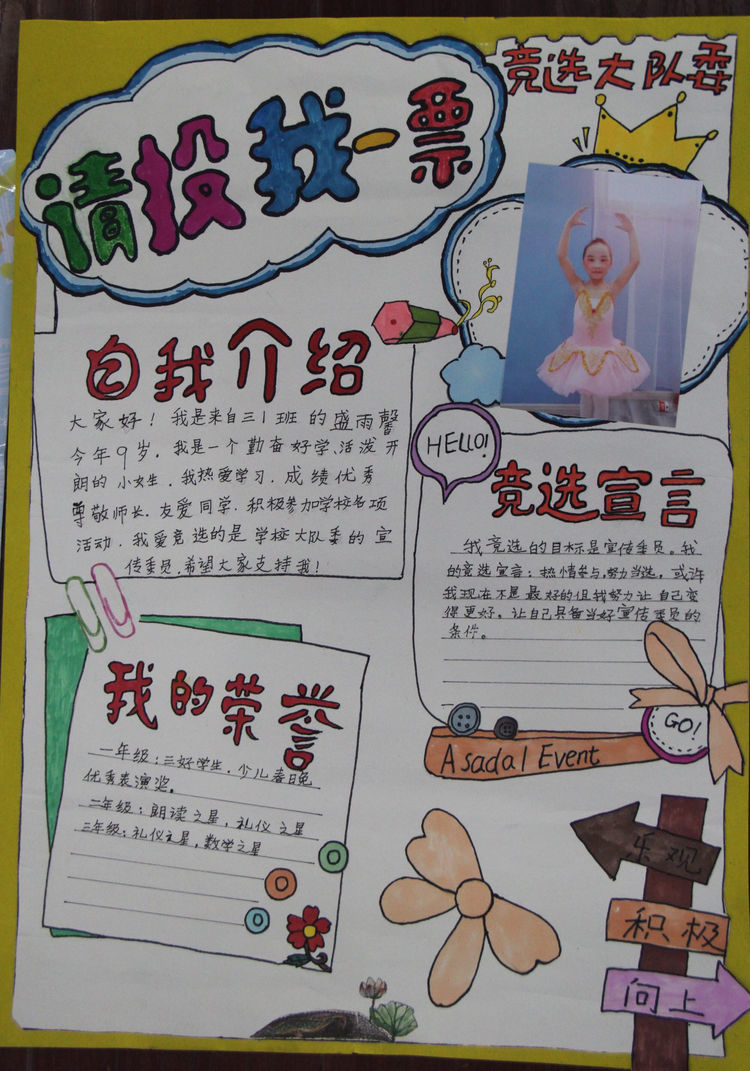 请投我一票
竞选大队委
自我介绍
大家好！我是来自三1班的盛雨馨
今年9岁．我是一个勤奋好学、活泼开
朗的小女生．我热爱学习．成绩优秀
尊敬师长．友爱同学．积极参加学校各项
活动．我爱竞选的是学校大队委的宣
传委员．希望大家支持我！
HELLO!
竞选宣言
我竞选的目标是宣传委员。我
的竞选宣言：热情参与，努力当选，或许
我现在不是最好的但我努力让自己变
得更好。让自己具备当好宣传委员的
条件。
GO!
Asadal Event
我的荣誉
一年级：三好学生．少儿春晚
优秀表演奖。
二年级：朗读之星，礼仪之星
三年级：礼仪之星，数学之星
乐观
积极
向上